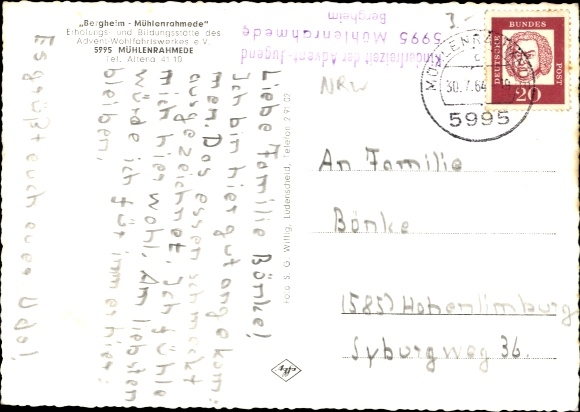 „Bergheim - Mühlenrahmede"
Erholungs- und Bildungsstätte des
Advent-Wohlfahrtswerkes e.V.
5995 MÜHLENRAHMEDE
Tel. Altena 41 10
Kinderfreizeit der Advent-Jugend
5995 Mühlenrahmede
Bergheim
3.-
NRW
DEUTSCHE BUNDESPOST
20
30.7.64
5995
Liebe Familie Bönke!
Ich bin hier gut angekom-
men. Das essen schmeckt
ausgezeichnet. Ich fühle
mich hier wohl. Am liebsten
würde ich für immer hier-
bleiben.
Es grüßt euch euer Udo!
Foto S. G. Wittig, Lüdenscheid, Telefon 2 91 02
An Familie
Bönke
(585) Hohenlimburg
Syburgweg 36.